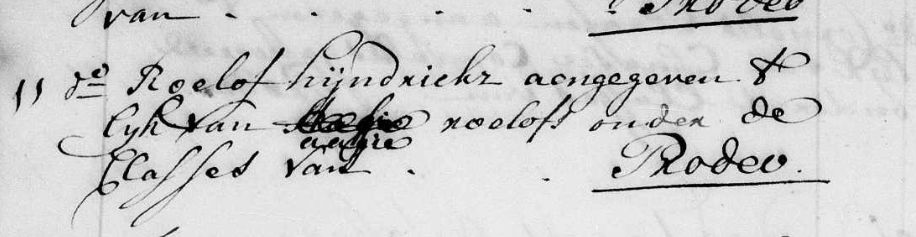 van . . . . . Pro deo
11 de Roelof hijndrickz aengegeven t
Lijk van aagie roelofs onder de
Classes van . . Pro deo.